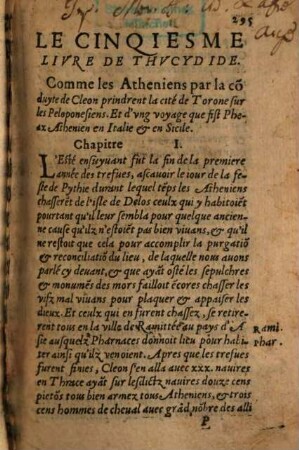 295
LE CINQIESME
LIVRE DE THVCYDIDE.
Comme les Atheniens par la cõ
duyte de Cleon prindrent la cité de Torone sur
les Peloponesiens. Et d'vng voyage que fist Phe-
ax Athenien en Italie & en Sicile.
Chapitre I.
L'Esté ensuyuant fut la fin de la premiere
année des trefues, ascauoir le iour de la fe-
ste de Pythie durant lequel tẽps les Atheniens
chasserẽt de l'isle de Delos ceulx qui y habitoiẽt
pourtant qu'il leur sembla pour quelque ancien-
ne cause qu'ilz n'estoiẽt pas bien viuans, & qu'il
ne restoit que cela pour accomplir la purgatiõ
& reconciliatiõ du lieu, de laquelle nous auons
parlé cy deuant, & que ayãt osté les sepulchres
& monumẽs des mors failloit ẽcores chasser les
vifz mal viuans pour plaquer & appaiser les
dieux. Et ceulx qui en furent chassez, se retire-
rent tous en la ville de Ramittée au pays d'A-
sie ausquelz Pharnaces donnoit lieu pour habi-
ter ainsi qu'ilz venoient. Apres que les trefues
furent finies, Cleon s'en alla auec xxx. nauires
en Thrace ayãt sur lesdictz nauires douze cens
pietõs tous bien armez tous Atheniens, & trois
cens hommes de cheual auec grãd nõbre des alli
Rami
phar.
P